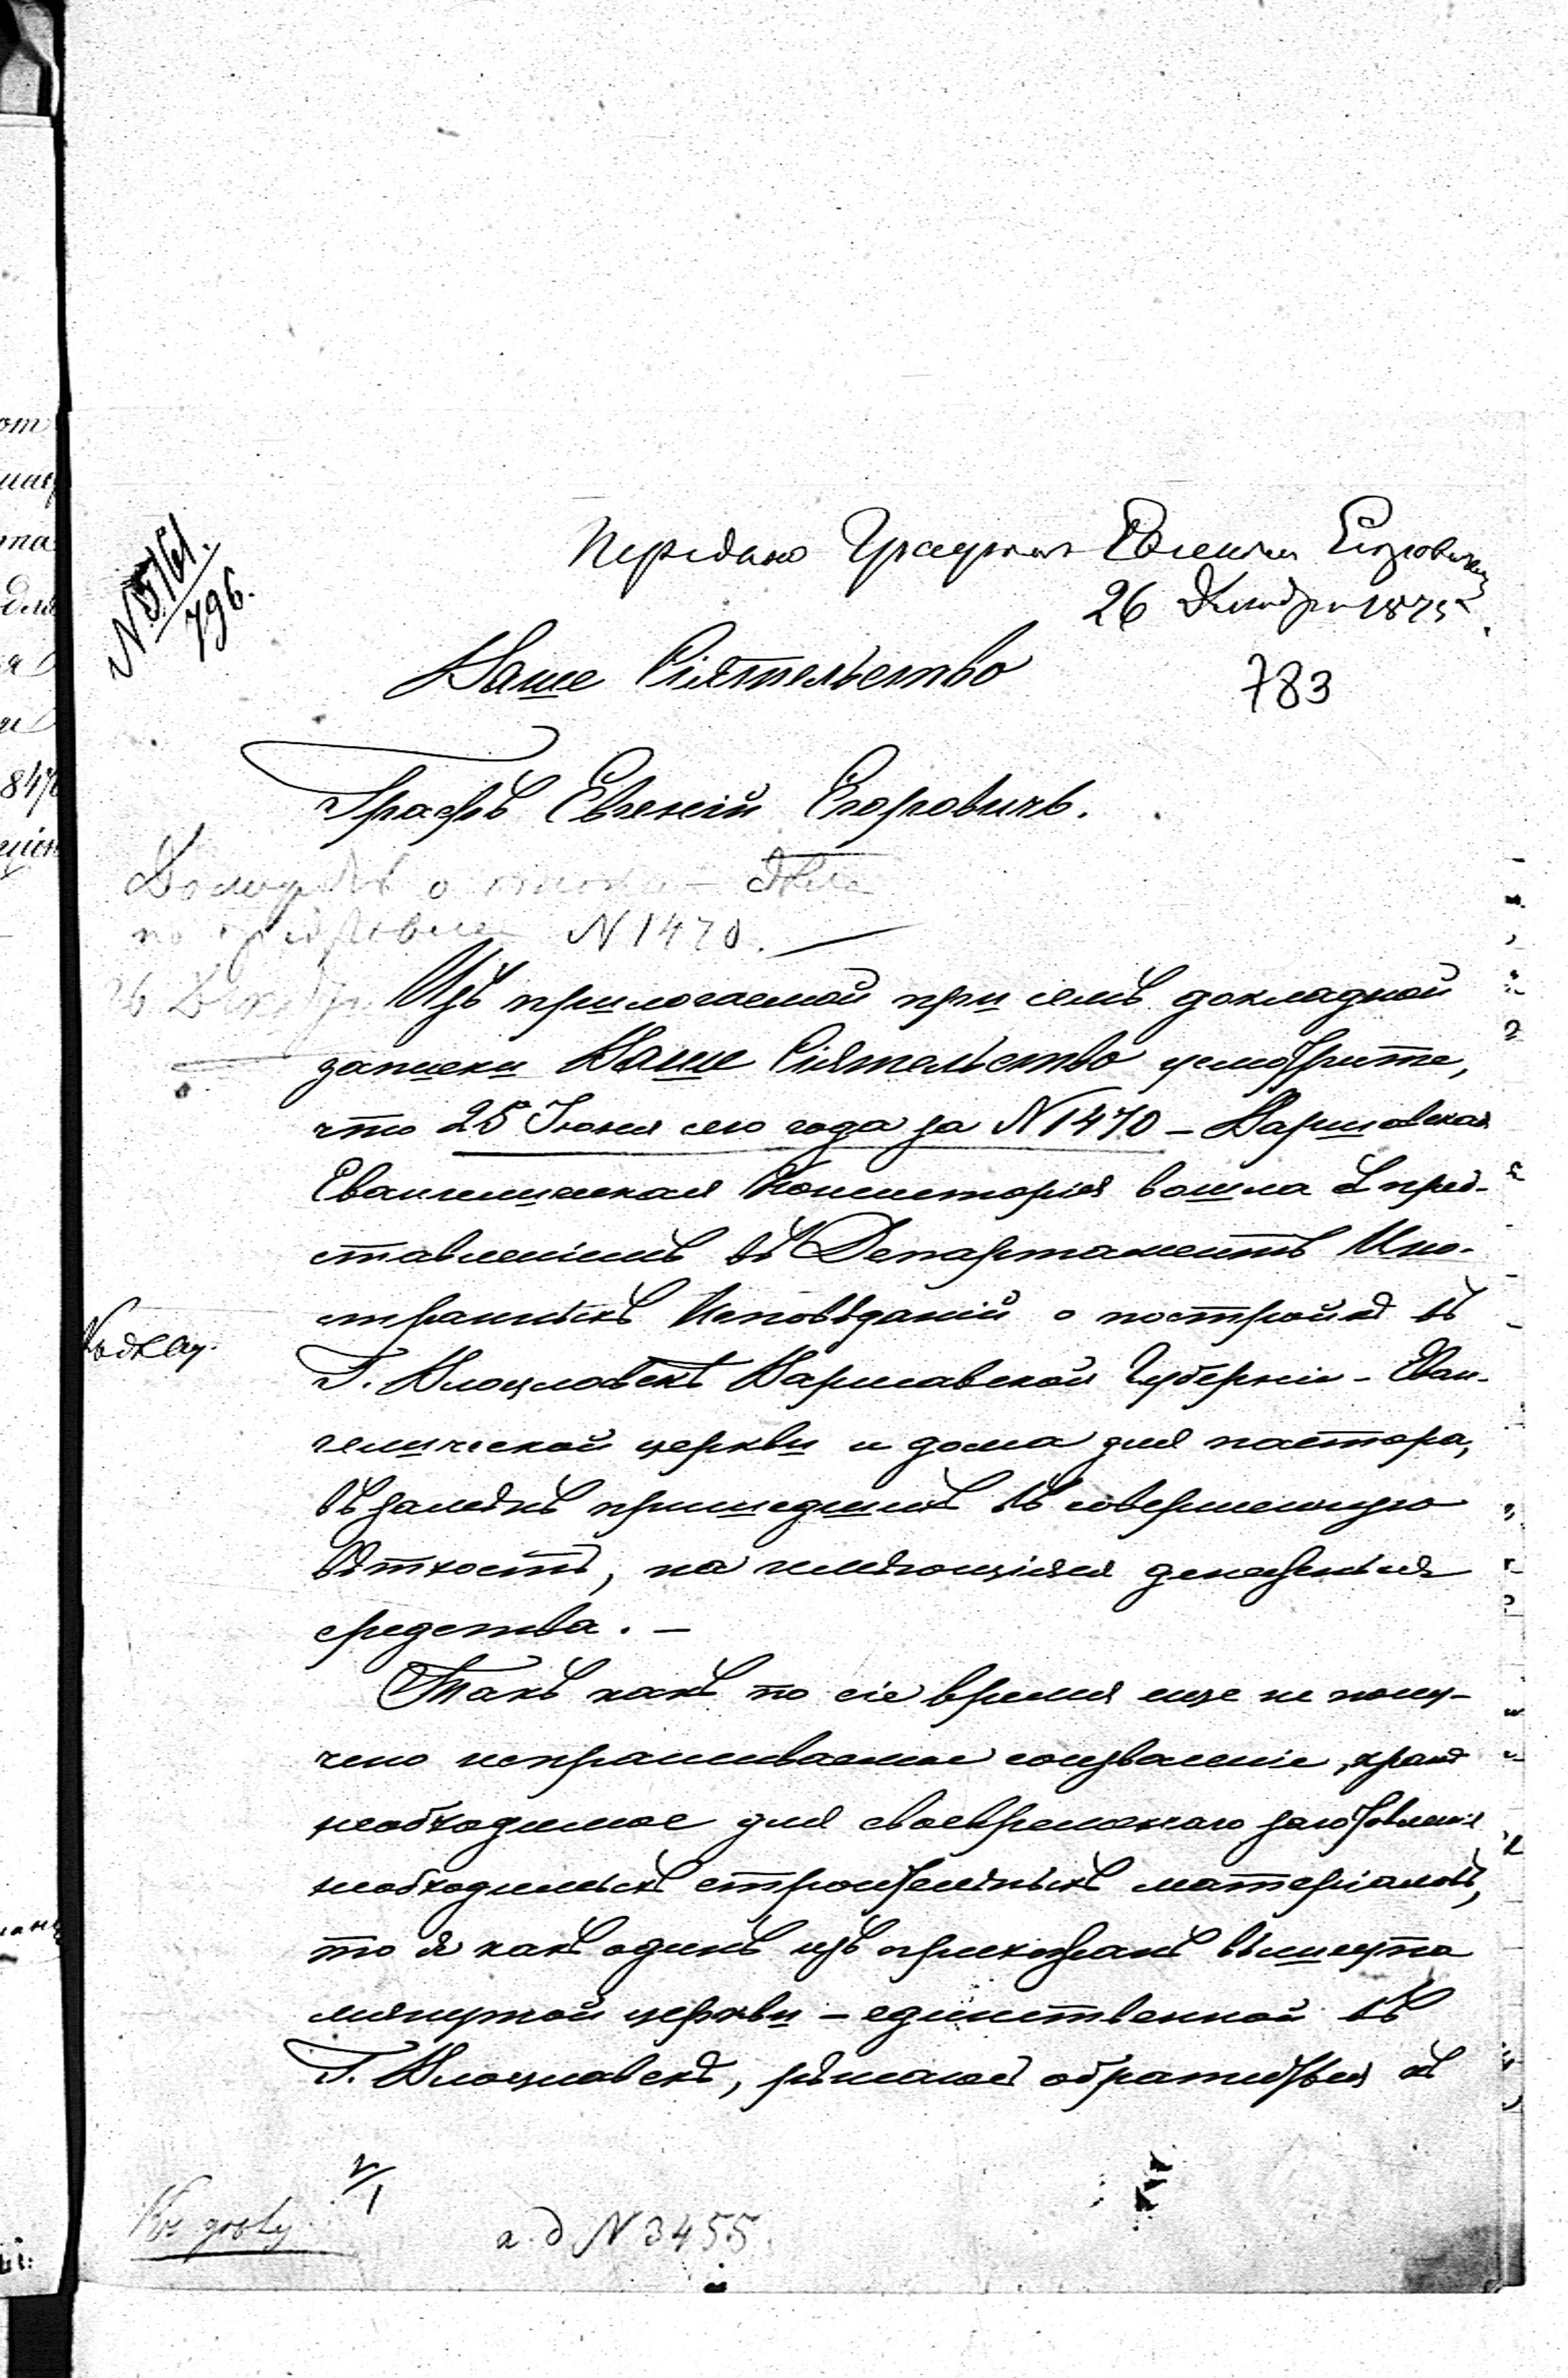 N 5161.
796.
Передано Графомъ Евгеніем Егоровичемъ
26 Декабря 1875.
783
Ваше Сіятельство
Графъ Евгеній Егоровичъ.
о
по N 1470.
26 Декабр
Изъ прилогаемой при семъ докладной
записки Ваше Сіятельство усмотрите,
что 25 Іюня сего года за N 1470 – Варшавская
Евангелическая Консисторія вошла съ пред-
ставленіемъ въ Департаментъ Ино-
странныхъ Исповѣданій о постройкѣ въ
Г. Влоцлавскѣ Варшавской Губерніи – Еван-
гелической церкви и дома для пастора,
въ замѣнъ пришедшихъ въ совершенную
вѣтхость, на имѣющіяся денежныя
средства. –
Такъ какъ по сіе время еще не полу-
чено испрашиваемое соизволеніе, крайне
необходимое для своевременнаго заготовленія
необходимыхъ строительныхъ матеріаловъ,
то я какъ одинъ изъ прихожанъ вышеупо
мянутой церкви – единственной въ
Г. Влоцлавскѣ, рѣшаюсь обратиться къ
2/1
а.д N 3455.